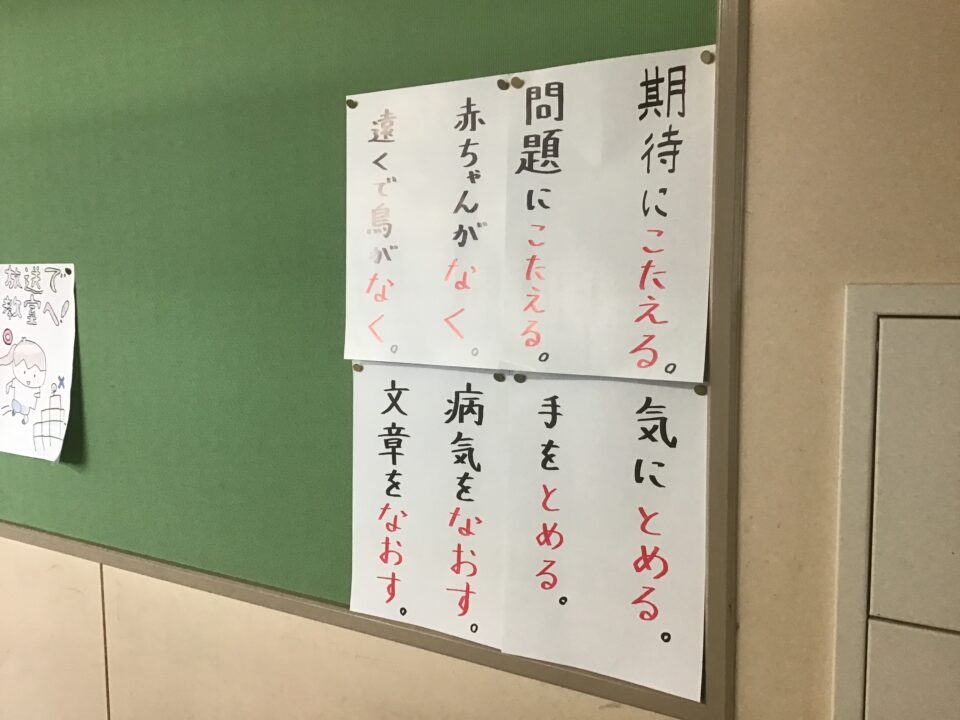 期待にこたえる。
問題にこたえる。
赤ちゃんがなく。
遠くで鳥がなく。
気にとめる。
手をとめる。
病気をなおす。
文章をなおす。
放送で
教室へ!